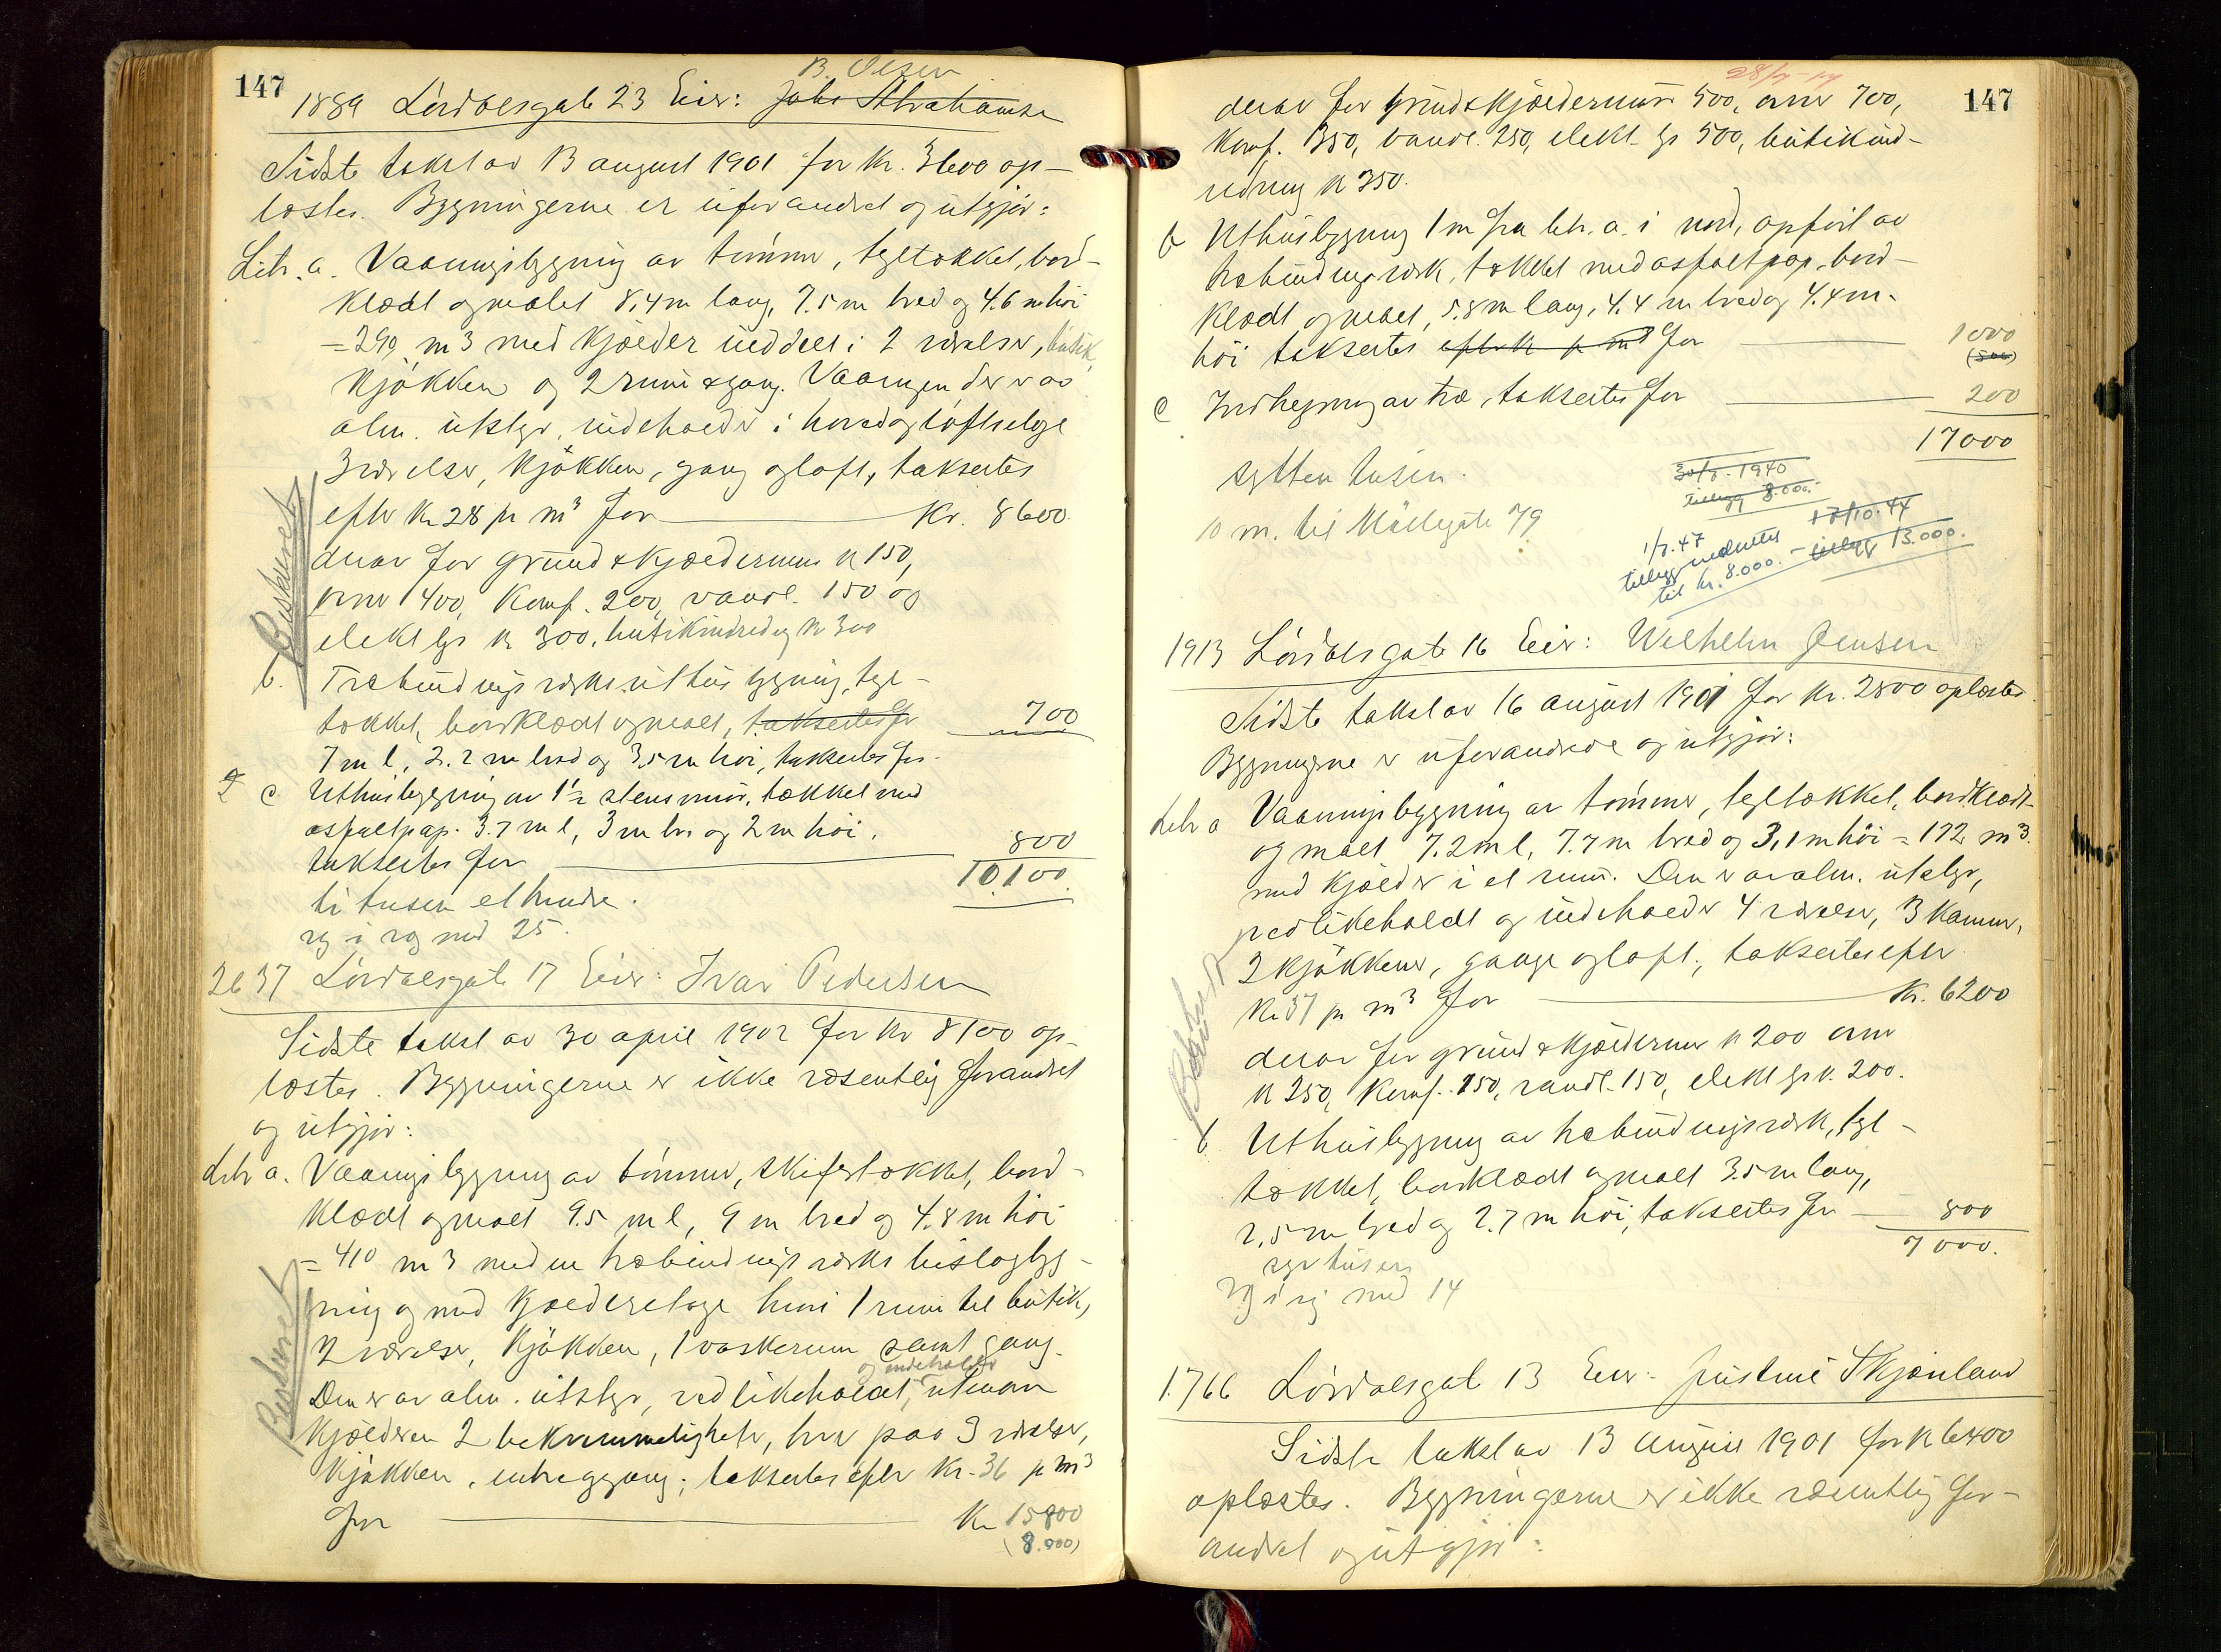 147
B. Olsen
1889 Lövdalsgate 23 Eier: Jakr Abrahamsen
Sidste takst av 13 august 1901 for kr. 3600 op-
løstes. Bygningerne er uforandret og utgjör:
Litr. a. Vaaningsbygning av tömmer, tegltækket, bord-
klædt og malet 8,4 m lang, 7.5 m bred og 4.6 m höi
= 290 m3 med kjælder inddelt i 2 værelser, butik,
kjökken og 2 rum & gang. Vaaningen der er av
alm. utstyr, indeholder i hoved og loftsetage
3 værelser, kjökken, gang og loft, taksertes
efter kr 28 pr m3 for Kr. 8600
derav for grund & kjældermur kr 150,
ovner 400, komf. 200, vandl. 150 og
elekt lys kr 300, butikindredng kr 300
Beskuret
b. Træbindingsverks uthusbygning, tegl-
tækket, bordklædt og malt, taksertes for 700
7 m l, 2.2 m bred og 3,5 m höi, taksertes for
c Uthusbygning av 1½ stens mur, tækket med
asfaltpap. 3.7 m l, 3 m br. og 2 m höi.
taksertes for 800
10.100.
ti tusen et hundre.
ryg i ryg med 25.
2637 Lövdalsgate 17 Eier: Ivar Pedersen
Sidste takst av 30 april 1902 for kr 8100 op-
løstes. Bygningerne er ikke væsentlig forandret
og utgjör:
Litr a. Vaaningsbygning av tömmer, skifertækket, bord-
klædt og malt 9.5 m l, 9 m bred og 4.8 m höi
= 410 m3 med en træbindingsverks bislagbyg-
ning og med kjælderetage hvori 1 rum til butik,
2 værelser, kjökken, 1 vaskerum samt gang.
og indeholder
Den er av alm. utstyr, vedlikeholdt, utenom
kjælderen 2 bekvemmeligheter, hver paa 3 værelser,
kjökken, entregang; taksertes efter kr. 36 pr m3
for Kr 15800
(8.000)
Beskuret
147
28/7-17
derav for grund & kjældermur 500, ovner 700,
komf. 350, vandl. 250, elekt. lys 500, butikind-
redning kr 350.
b Uthusbygning 1 m fra litr. a. i nord, opfört av
træbindingsverk, tækket med asfaltpap, bord-
klædt og malet, 5.8 m lang, 4.4 m bred og 4.4 m
höi taksertes efter kr pr m3 for 1000
(500)
c Indhegning av træ, taksertes for 200
17000
sytten tusen.
10 m. til Möllegate 79
30/7. 1940
tillegg 8.000.
17/10.44
tillegg 13.000.
1/7.47
tillegg nedsettes
til kr. 8.000.-
1913 Lövdalsgate 16 Eier: Wilhelm Jensen
Sidste takst av 16 august 1901 for kr. 2800 opløstes.
Bygningerne er uforandrede og utgjör:
Litr a Vaaningsbygning av tömmer, tegltækket, bordklædt
og malt 7.2 m l, 7.7 m bred og 3,1 m höi = 172 m3.
med kjælder i et rum. Den er av alm. utstyr,
vedlikeholdt og indeholder 4 værelser, 3 kammer,
2 kjökkener, gange og loft; taksertes efter
kr 37 pr m3 for Kr. 6200
derav for grund & kjældermur kr 200 ovner
kr 250, komf. 150, vandl. 150, elekt lys kr. 200.
Beskuret
b Uthusbygning av træbindingsverk, tegl-
tækket, bordklædt og malt 3.5 m lang,
2,5 m bred og 2.7 m höi, taksertes for 800
7000.
syv tusen
ryg i ryg med 14
1766 Lövdalsgate 13 Eier: Justine Skjönland
Sidste takst av 13 august 1901 for kr 6400
opløstes. Bygningerne er ikke væsentlig for-
andret og utgjör: